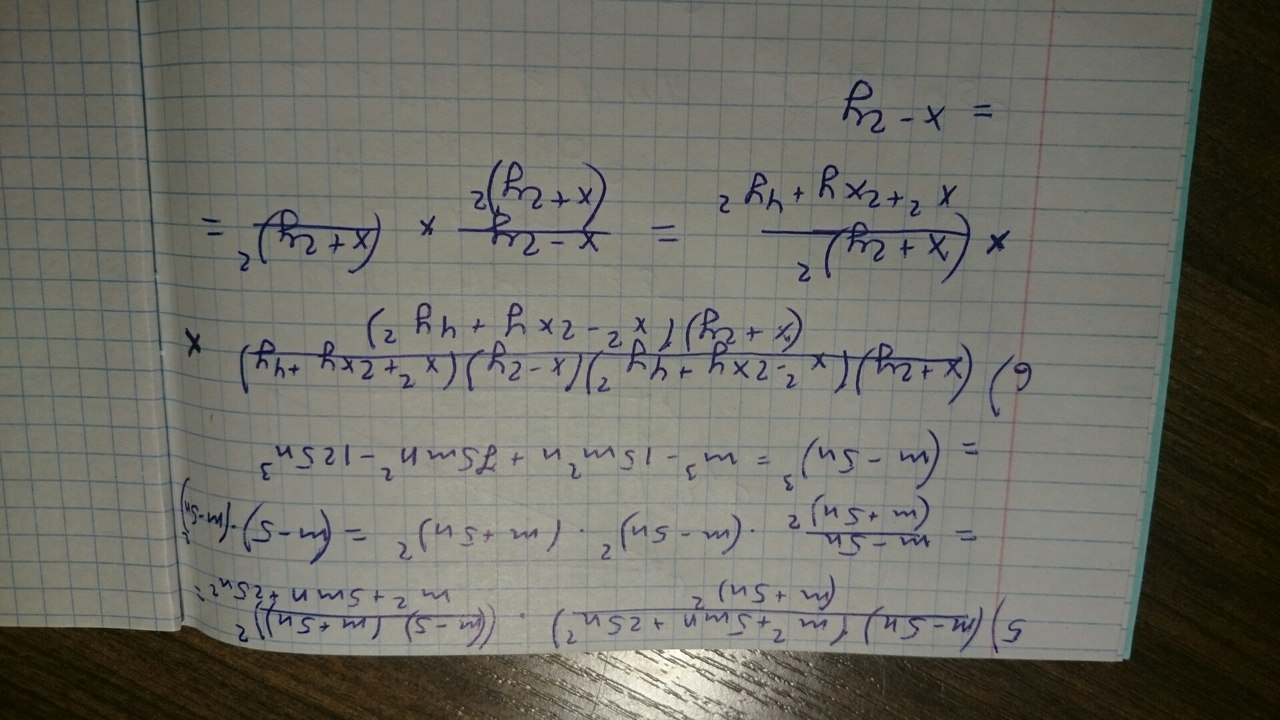 5) (m-5n)(m²+5mn+25n²)/(m+5n)² · ((m-5)(m+5n))²/m²+5mn+25n² =
= m-5n/(m+5n)² · (m-5n)² · (m+5n)² = (m-5)·(m-5n)²
= (m-5n)³ = m³-15m²n+75mn²-125n³
6) (x+2y)(x²-2xy+4y²)(x-2y)(x²+2xy+4y)/(x+2y)(x²-2xy+4y²) ×
× (x+2y)²/x²+2xy+4y² = x-2y/(x+2y)² × (x+2y)² =
= x-2y